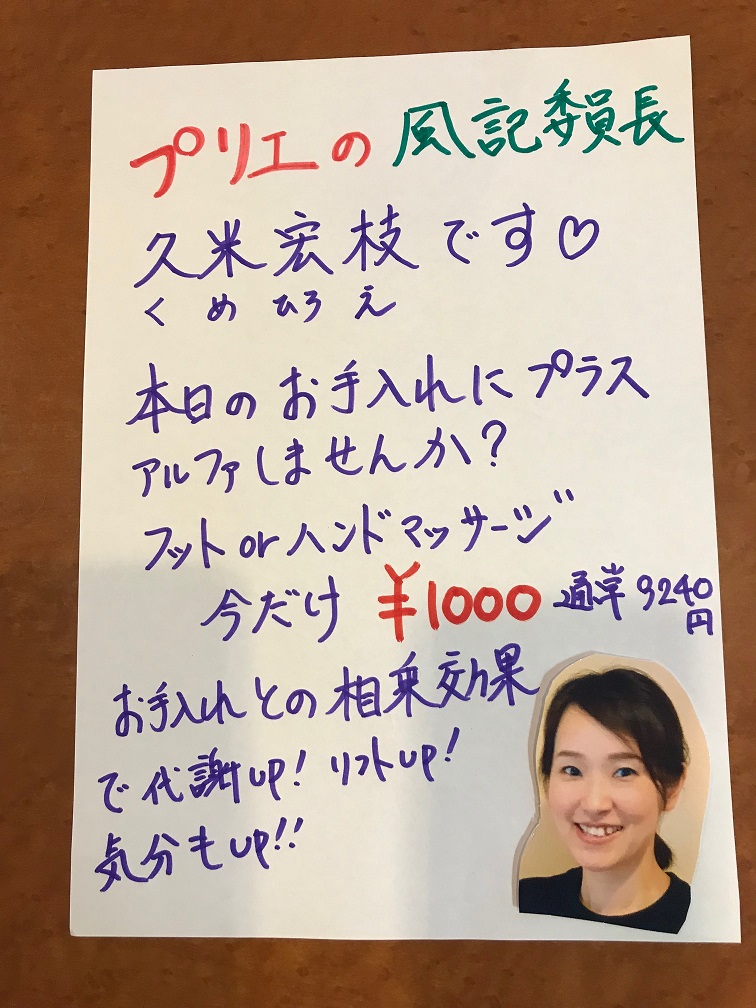 プリエの 風記委員長
久米宏枝です♡
くめひろえ
本日のお手入れにプラス
アルファしませんか?
フットorハンドマッサージ
今だけ ¥1000 通常3240
円
お手入れとの相乗効果
で代謝up! リフトup!
気分もup!!